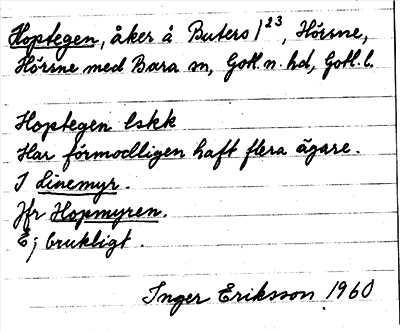 Hoptegen, åker å Buters 1²³, Hörsne,
Hörsne med Bara sn, Gotl. n. hd, Gotl. l.
Hoptegen lskk
Har förmodligen haft flera ägare.
I Linemyr.
Jfr Hopmyren.
Ej brukligt.
Inger Eriksson 1960